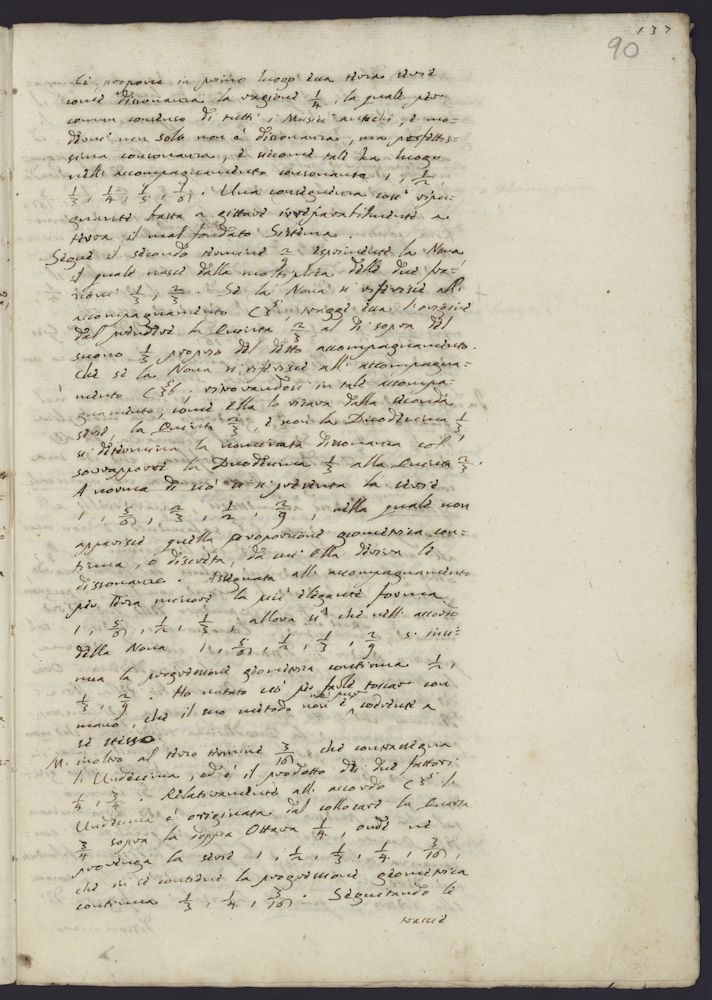 137
90
Ci propone in primo luogo sua terza serie
come dissonanza la ragione 1/4, la quale per
comun consenso di tutti i Musici antichi, e mo=
derni non solo non è dissonanza, ma perfettis=
sima consonanza, e siccome tale ha luogo
nell' accompagnamento consonante 1, 1/2,
1/3, 1/4, 1/5, 1/6. Una conseguenza così ripu=
gnante basta a gittare irreparabilmente a
terra il mal fondato Sistema.
Segue il secondo termine 2/9 esprimente la Nona,
il quale nasce dalla moltiplica delle due ra=
gioni 1/3, 2/3. Se la Nona si riferisce all'
accompagnamento C 3 5 traggi sua l'origine
dal prendere la Quinta 2/3 al di sopra del
suono 1/3 proprio del detto accompagnamento.
Che se la Nona si riferisce all' accompagna=
mento C 3 5, ritrovandosi in tale accompa=
gnamento, come ella lo ricava dalla seconda
serie, la Quinta 2/3, e non la Duodecima 1/3,
si determina la nominata dissonanza col
sovrapporre la Duodecima 1/3 alla Quinta 2/3.
A norma di ciò si presenta la serie
1, 5/6, 2/3, 1/2, 2/9, nella quale non
apparisce quella proporzione geometrica con=
tinua, o discreta, da cui ella deriva le
dissonanze. Assegnata all' accompagnamento
per Terza minore la più elegante forma
1, 5/6, 1/2, 1/3, allora sì che nell' accordo
della Nona 1, 5/6, 1/2, 1/3, 2/9 s' insi=
nua la progressione geometrica continua 1/2,
1/3, 2/9. Ho notato ciò per farle toccar con
mano, che il suo metodo non è coerente a
se stesso.
M' inoltro al terzo termine 3/16, che contrassegna
l' Undecima, ed è il prodotto dei due fattori
1/4, 3/4. Relativamente all' accordo C 3 5 l'
Undecima è originata dal collocare la Quarta
3/4 sopra la doppia Ottava 1/4, onde ne
provenga la serie 1, 1/2, 1/3, 1/4, 3/16,
che in sè contiene la progressione geometrica
continua 1/3, 1/4, 3/16. Seguitando le